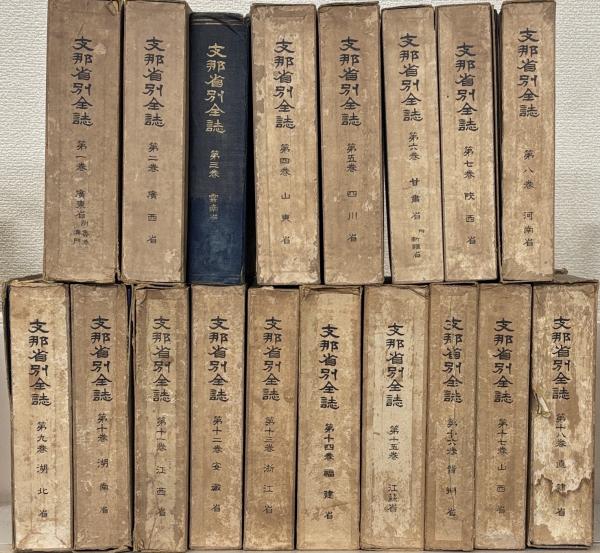 支那省別全誌 第一巻 廣東省 附香港澳門
支那省別全誌 第二巻 廣西省
支那省別全誌 第三巻 雲南省
支那省別全誌 第四巻 山東省
支那省別全誌 第五巻 四川省
支那省別全誌 第六巻 甘肅省 附新疆省
支那省別全誌 第七巻 陝西省
支那省別全誌 第八巻 河南省
支那省別全誌 第九巻 湖北省
支那省別全誌 第十巻 湖南省
支那省別全誌 第十一巻 江西省
支那省別全誌 第十二巻 安徽省
支那省別全誌 第十三巻 浙江省
支那省別全誌 第十四巻 福建省
支那省別全誌 第十五巻 江蘇省
支那省別全誌 第十六巻 貴州省
支那省別全誌 第十七巻 山西省
支那省別全誌 第十八巻 直隸省